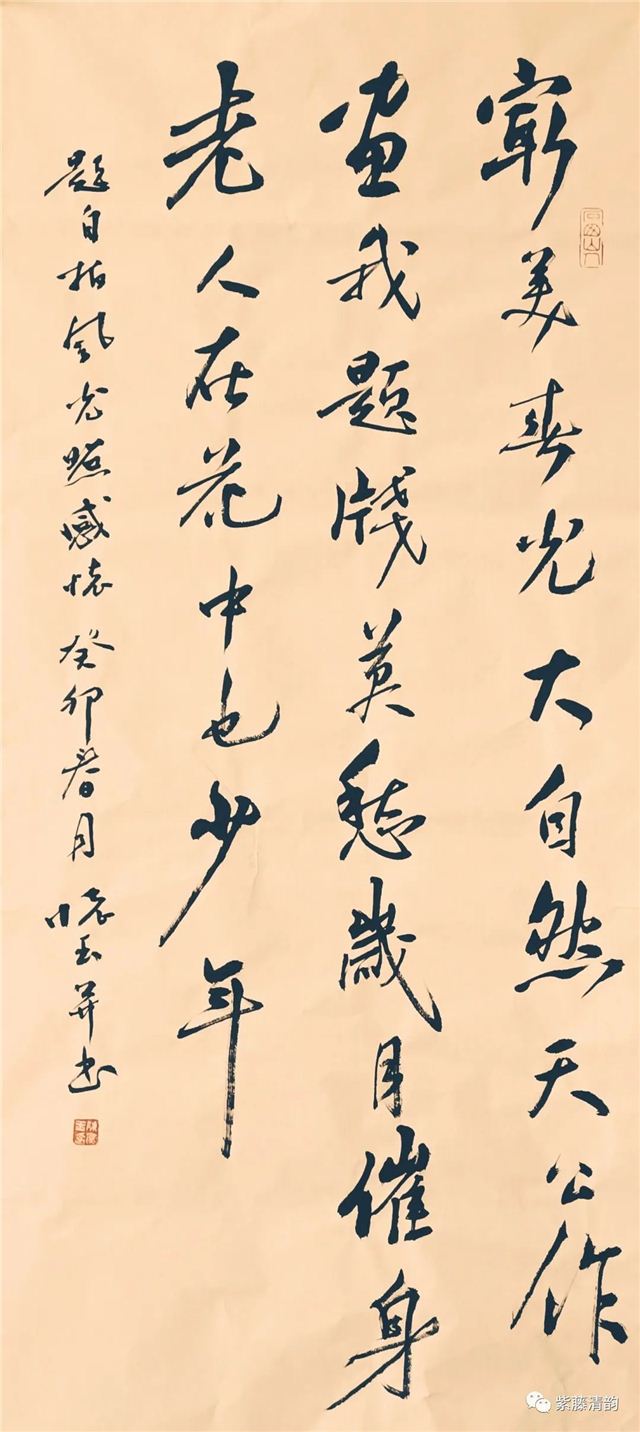 最美春光大自然天公作
画我題牋莫愁歲月催身
老人在花中也少年
題自拍風光照感懷 癸卯春月 懷玉并书
紫藤清韵